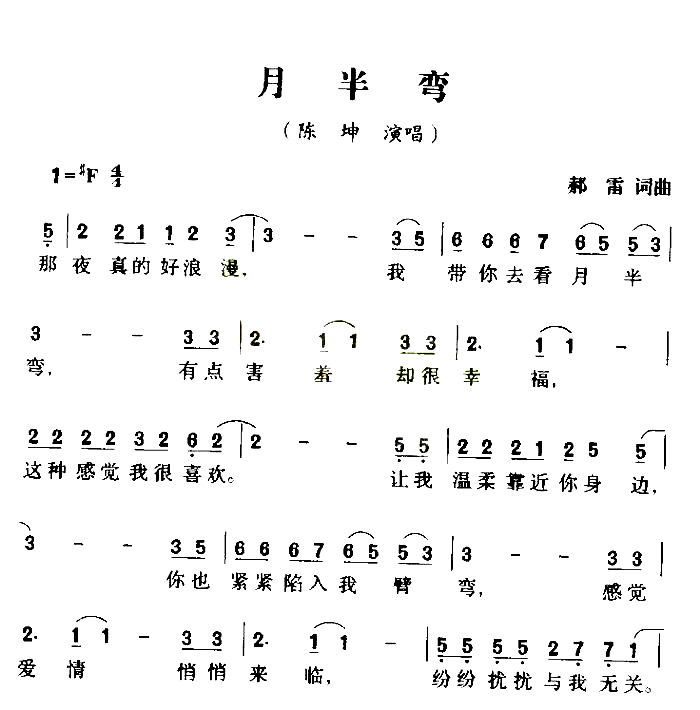 月 半 弯
（陈 坤 演唱）
1=♯F 4/4
郝 雷 词曲
5 | 2 2 1 1 1 2 3 | 3 - - 3 5 | 6 6 6 7 6 5 5 3 |
那 夜 真的好浪 漫， 我 带你去看 月 半
3 - - 3 3 | 2. 1 1 3 3 | 2. 1 1 - |
弯， 有点 害 羞 却很 幸 福，
2 2 2 2 3 2 6 2 | 2 - - 5 5 | 2 2 2 1 2 5 5 |
这种 感觉 我很 喜欢。 让我 温柔 靠近 你身 边，
3 - - 3 5 | 6 6 6 7 6 5 5 3 | 3 - - 3 3 |
你也 紧紧陷入 我 臂 弯， 感觉
2. 1 1 - 3 3 | 2. 1 1 - | 5 5 5 5 2 7 7 1 |
爱 情 悄悄 来 临， 纷纷 扰扰 与我 无关。